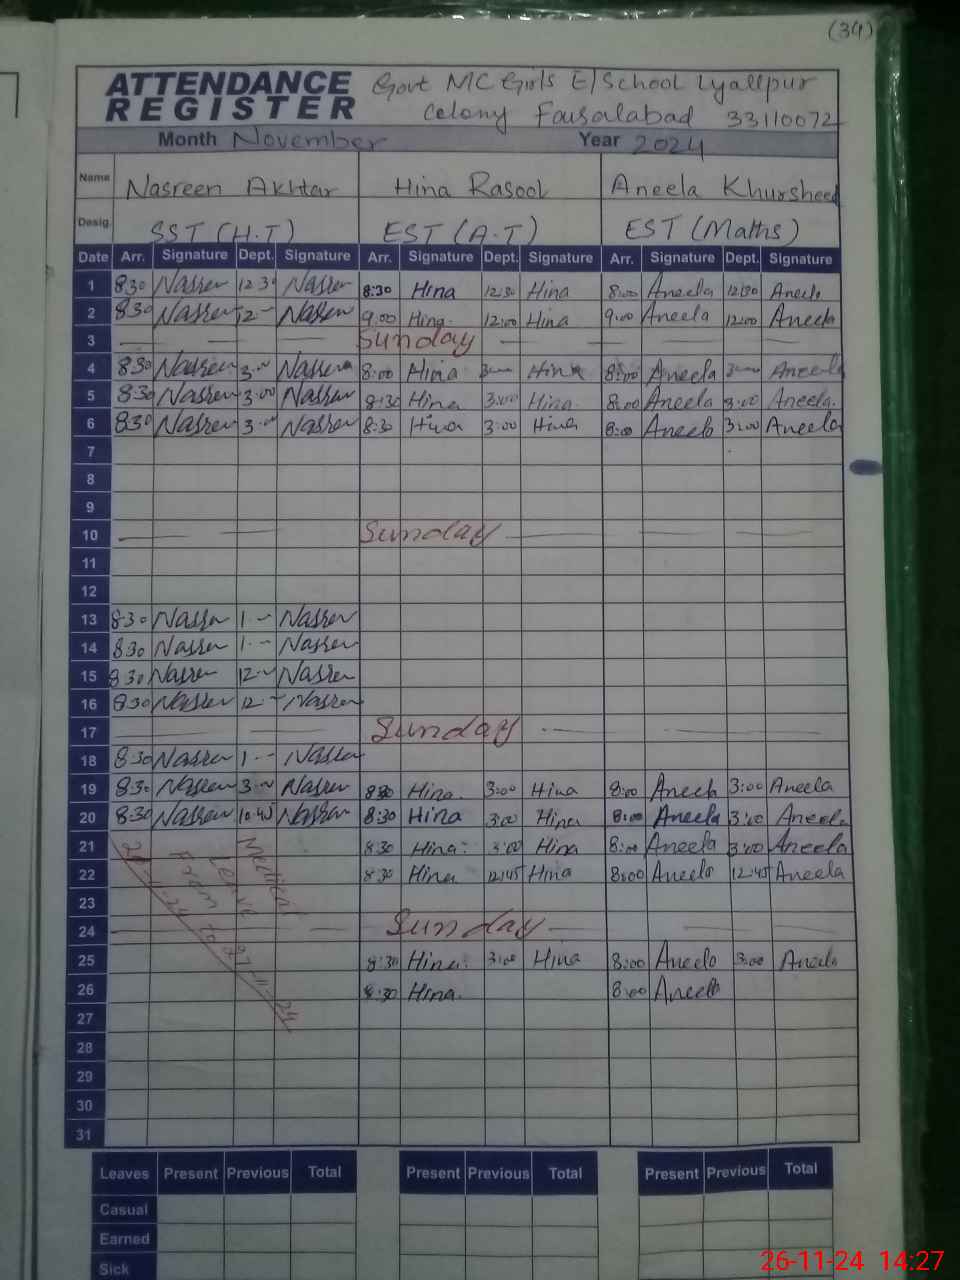 (34)
ATTENDANCE REGISTER
Govt MC Girls E/School Lyallpur
Colony Faisalabad 33110072
Month November Year 2024
Name Nasreen Akhtar Hina Rasool Aneela Khursheed
Desig. SST (H.T) EST (A.T) EST (Maths)
Date Arr. Signature Dept. Signature Arr. Signature Dept. Signature Arr. Signature Dept. Signature
1 8:30 Nasren 12:30 Nasren 8:30 Hina 12:30 Hina 8:00 Aneela 12:30 Aneela
2 8:30 Nasren 12 - Nasren 9:00 Hina 12:00 Hina 9:00 Aneela 12:00 Aneela
3 Sunday
4 8:30 Nasren 3:00 Nasren 8:00 Hina 3:00 Hina 8:00 Aneela 3:00 Aneela
5 8:30 Nasren 3:00 Nasren 8:30 Hina 3:00 Hina 8:00 Aneela 3:00 Aneela.
6 8:30 Nasren 3:00 Nasren 8:30 Hina 3:00 Hina 8:00 Aneela 3:00 Aneela
7
8
9
10 Sunday
11
12
13 8:30 Nasren 1 -- Nasren
14 8:30 Nasren 1 -- Nasren
15 8:30 Nasren 12 -- Nasren
16 8:30 Nasren 12 -- Nasren
17 Sunday
18 8:30 Nasren 1 -- Nasren
19 8:30 Nasren 3:00 Nasren 8:30 Hina. 3:00 Hina 8:00 Aneela 3:00 Aneela
20 8:30 Nasren 10:45 Nasren 8:30 Hina 3:00 Hina 8:00 Aneela 3:00 Aneela
21 8:30 Hina. 3:00 Hina 8:00 Aneela 3:00 Aneela
22 8:30 Hina 12:45 Hina 8:00 Aneela 12:45 Aneela
Medical
Leave
From to
-11-24 27-11-24
23
24 Sunday
25 8:30 Hina. 3:00 Hina 8:00 Aneela 3:00 Aneela
26 8:30 Hina. 8:00 Aneela
27
28
29
30
31
Leaves Present Previous Total Present Previous Total Present Previous Total
Casual
Earned
Sick
26-11-24 14:27